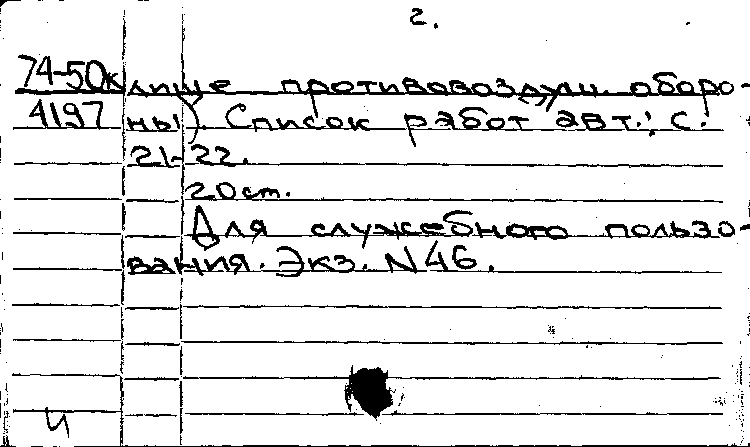 2.
74-50к лище противовоздушн. оборо-
4197 ны). Список работ авт.: с.
21-22.
20 cm.
Для служебного пользо-
вания. Экз. N 46.
и